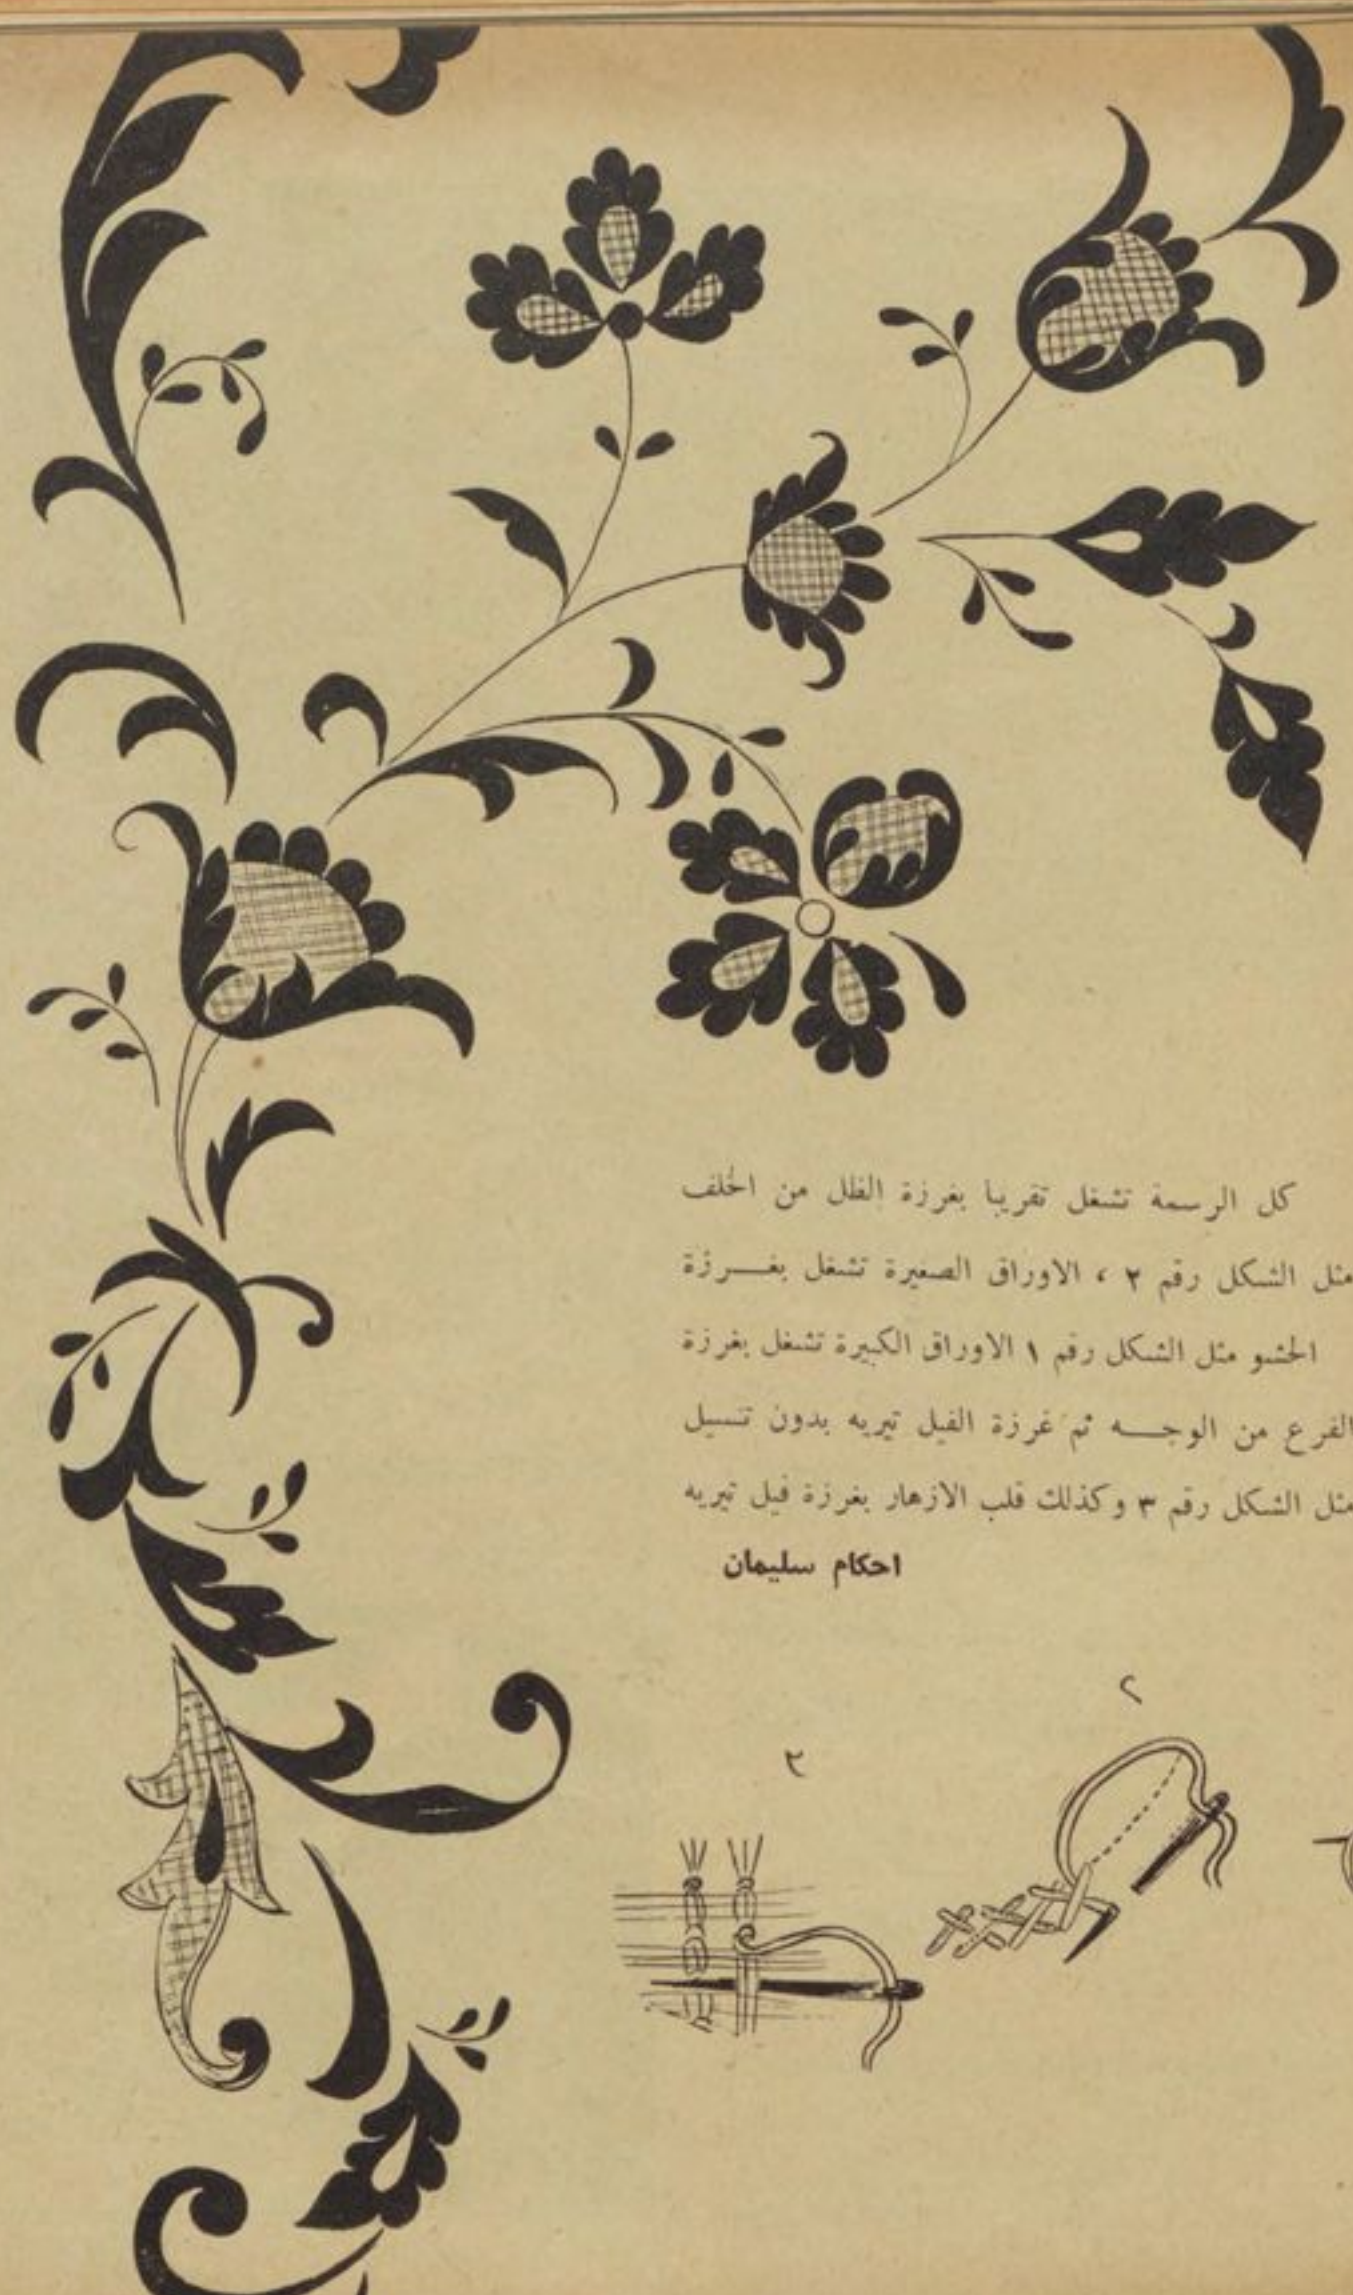 كل الرسمة تشغل تقريبا بغرزة الظل من الخلف
مثل الشكل رقم ٢ ، الاوراق الصغيرة تشغل بغـــرزة
الحشو مثل الشكل رقم ١ الاوراق الكبيرة تشغل بغرزة
الفرع من الوجـــه ثم غرزة الفيل تيريه بدون تنسيل
مثل الشكل رقم ٣ وكذلك قلب الازهار بغرزة فيل تيريه
احكام سليمان
٢
٣